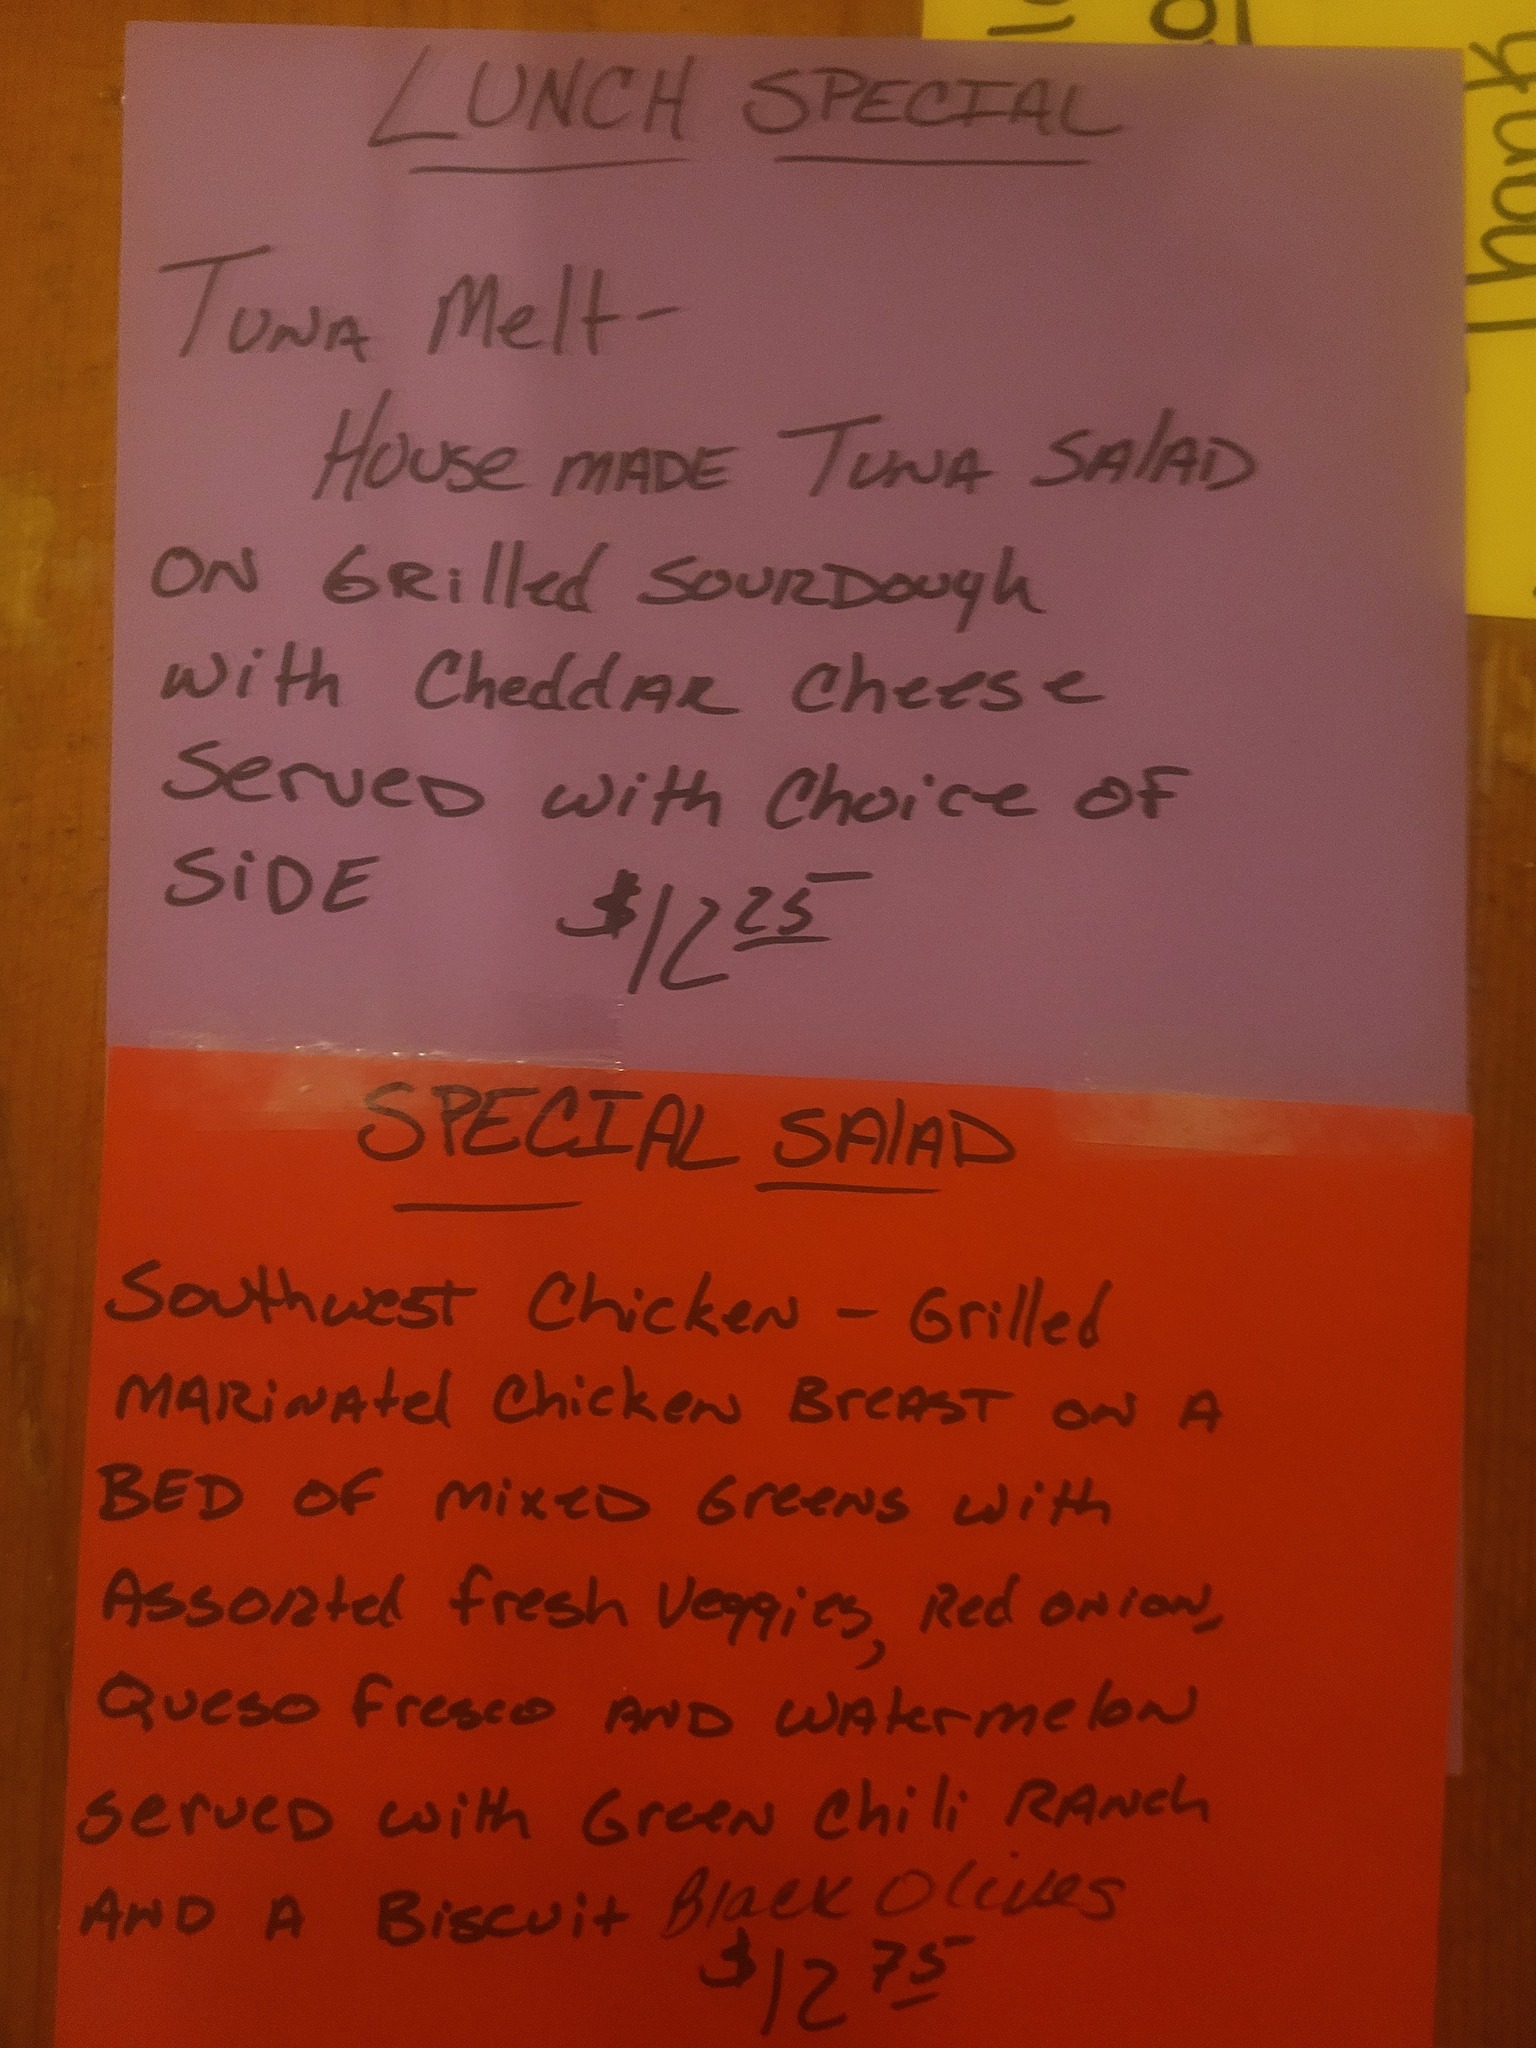 LUNCH SPECIAL
Tuna Melt-
House made Tuna Salad
on Grilled Sourdough
with Cheddar Cheese
Served with Choice of
Side $12.25
SPECIAL SALAD
Southwest Chicken - Grilled
Marinated Chicken Breast on a
Bed of mixed Greens with
Assorted fresh Veggies, Red onion,
Queso fresco and watermelon
served with Green Chili Ranch
and a Biscuit Black Olives
$12.75
Thank